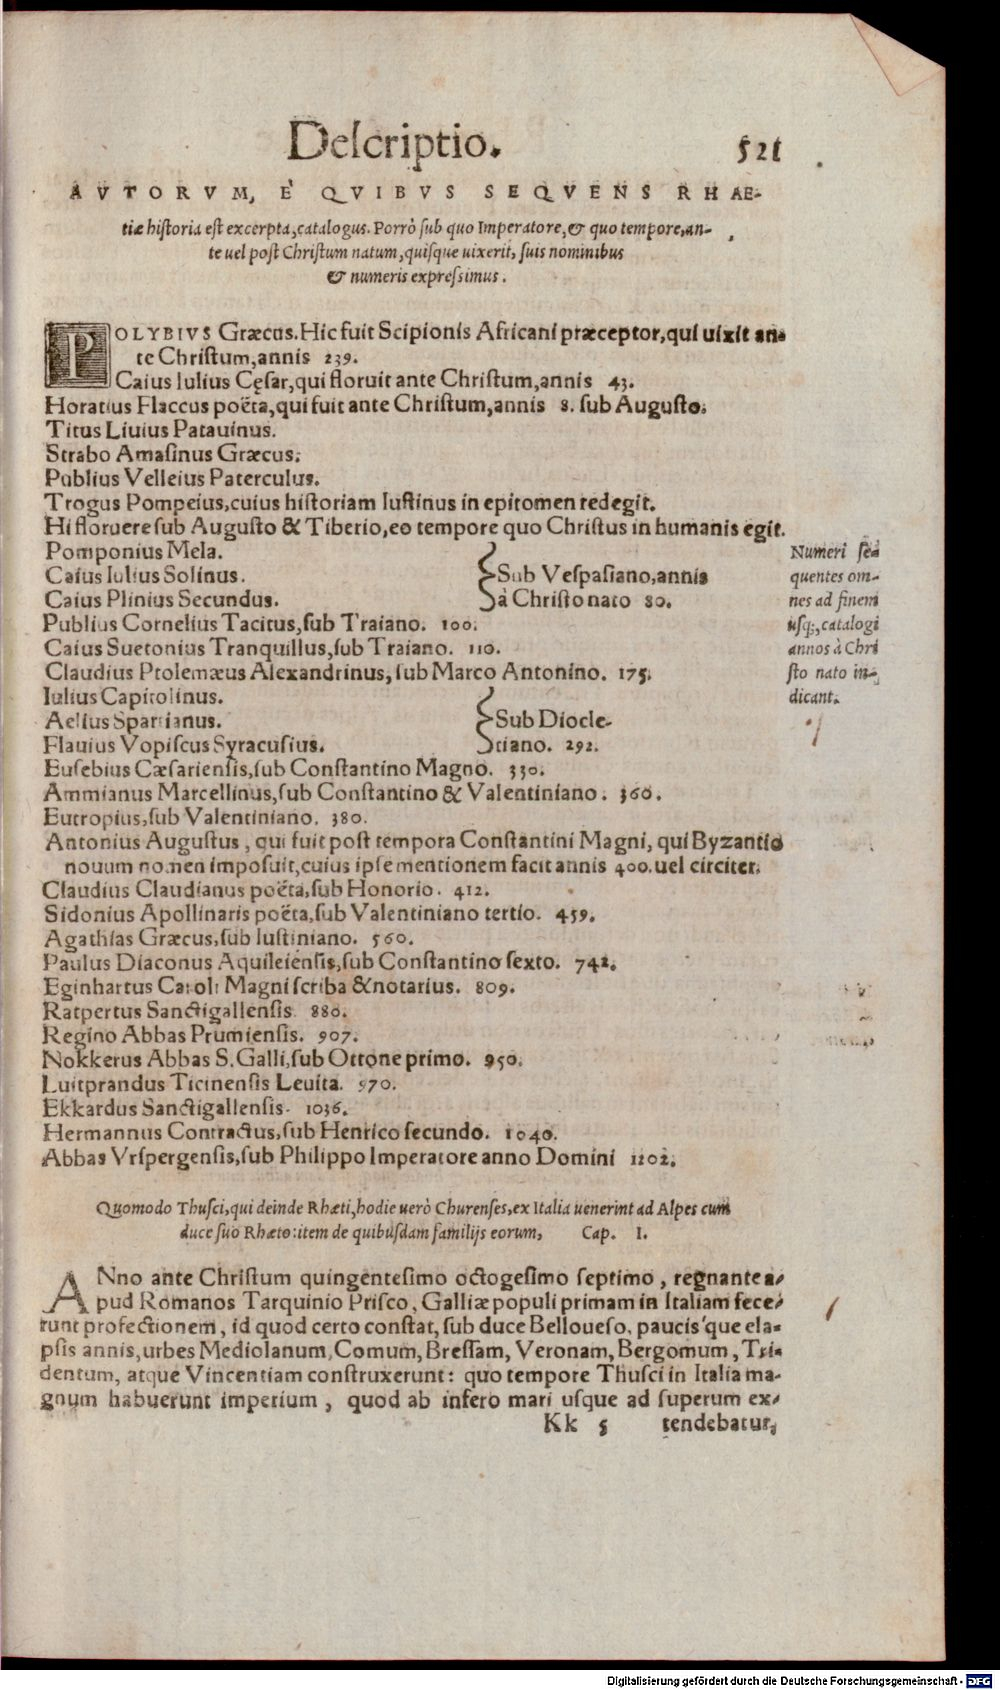 Descriptio. 521
AVTORVM, E' QVIBVS SEQVENS RHAE-
tiæ historia est excerpta, catalogus. Porrò sub quo Imperatore, & quo tempore, an-
te uel post Christum natum, quisque uixerit, suis nominibus
& numeris expressimus.
POLYBIVS Græcus. Hic fuit Scipionis Africani præceptor, qui uixit an-
te Christum, annis 239.
Caius Iulius Cęsar, qui floruit ante Christum, annis 43.
Horatius Flaccus poëta, qui fuit ante Christum, annis 8. sub Augusto.
Titus Liuius Patauinus.
Strabo Amasinus Græcus.
Publius Velleius Paterculus.
Trogus Pompeius, cuius historiam Iustinus in epitomen redegit.
Hi floruere sub Augusto & Tiberio, eo tempore quo Christus in humanis egit.
Pomponius Mela.
Caius Iulius Solinus.
Caius Plinius Secundus.
Sub Vespasiano, annis
à Christo nato 80.
Publius Cornelius Tacitus, sub Traiano. 100.
Caius Suetonius Tranquillus, sub Traiano. 110.
Claudius Ptolemæus Alexandrinus, sub Marco Antonino. 175.
Numeri se-
quentes om-
nes ad finem
usq;, catalogi
annos à Chri
sto nato in-
dicant.
Iulius Capitolinus.
Aelius Spartianus.
Flauius Vopiscus Syracusius.
Sub Diocle-
tiano. 292.
Eusebius Cæsariensis, sub Constantino Magno. 330.
Ammianus Marcellinus, sub Constantino & Valentiniano. 360.
Eutropius, sub Valentiniano. 380.
Antonius Augustus, qui fuit post tempora Constantini Magni, qui Byzantio
nouum nomen imposuit, cuius ipse mentionem facit annis 400. uel circiter.
Claudius Claudianus poëta, sub Honorio. 412.
Sidonius Apollinaris poëta, sub Valentiniano tertio. 459.
Agathias Græcus, sub Iustiniano. 560.
Paulus Diaconus Aquileiensis, sub Constantino sexto. 742.
Eginhartus Caroli Magni scriba & notarius. 809.
Ratpertus Sanctigallensis 880.
Regino Abbas Prumiensis. 907.
Nokkerus Abbas S. Galli, sub Ottone primo. 950.
Luitprandus Ticinensis Leuita. 970.
Ekkardus Sanctigallensis. 1036.
Hermannus Contractus, sub Henrico secundo. 1040.
Abbas Vrspergensis, sub Philippo Imperatore anno Domini 1202.
Quomodo Thusci, qui deinde Rhæti, hodie uerò Churenses, ex Italia uenerint ad Alpes cum
duce suo Rhæto: item de quibusdam familijs eorum, Cap. I.
ANno ante Christum quingentesimo octogesimo septimo, regnante a-
pud Romanos Tarquinio Prisco, Galliæ populi primam in Italiam fece-
runt profectionem, id quod certo constat, sub duce Belloueso, paucis'que ela-
psis annis, urbes Mediolanum, Comum, Bressam, Veronam, Bergomum, Tri-
dentum, atque Vincentiam construxerunt: quo tempore Thusci in Italia ma-
gnum habuerunt imperium, quod ab infero mari usque ad superum ex-
Kk 5 tendebatur,
Digitalisierung gefördert durch die Deutsche Forschungsgemeinschaft - DFG